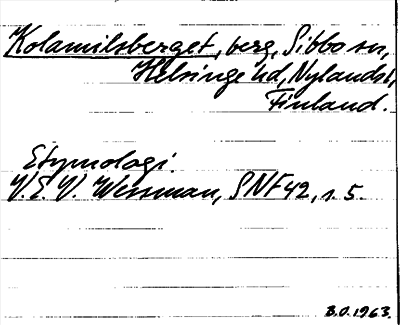 Kolamilsberget, berg, Sibbo sn,
Helsinge hd, Nylands l,
Finland.
Etymologi.
V.E.V. Wessman, SNF 42, s. 5.
B.O. 1963.